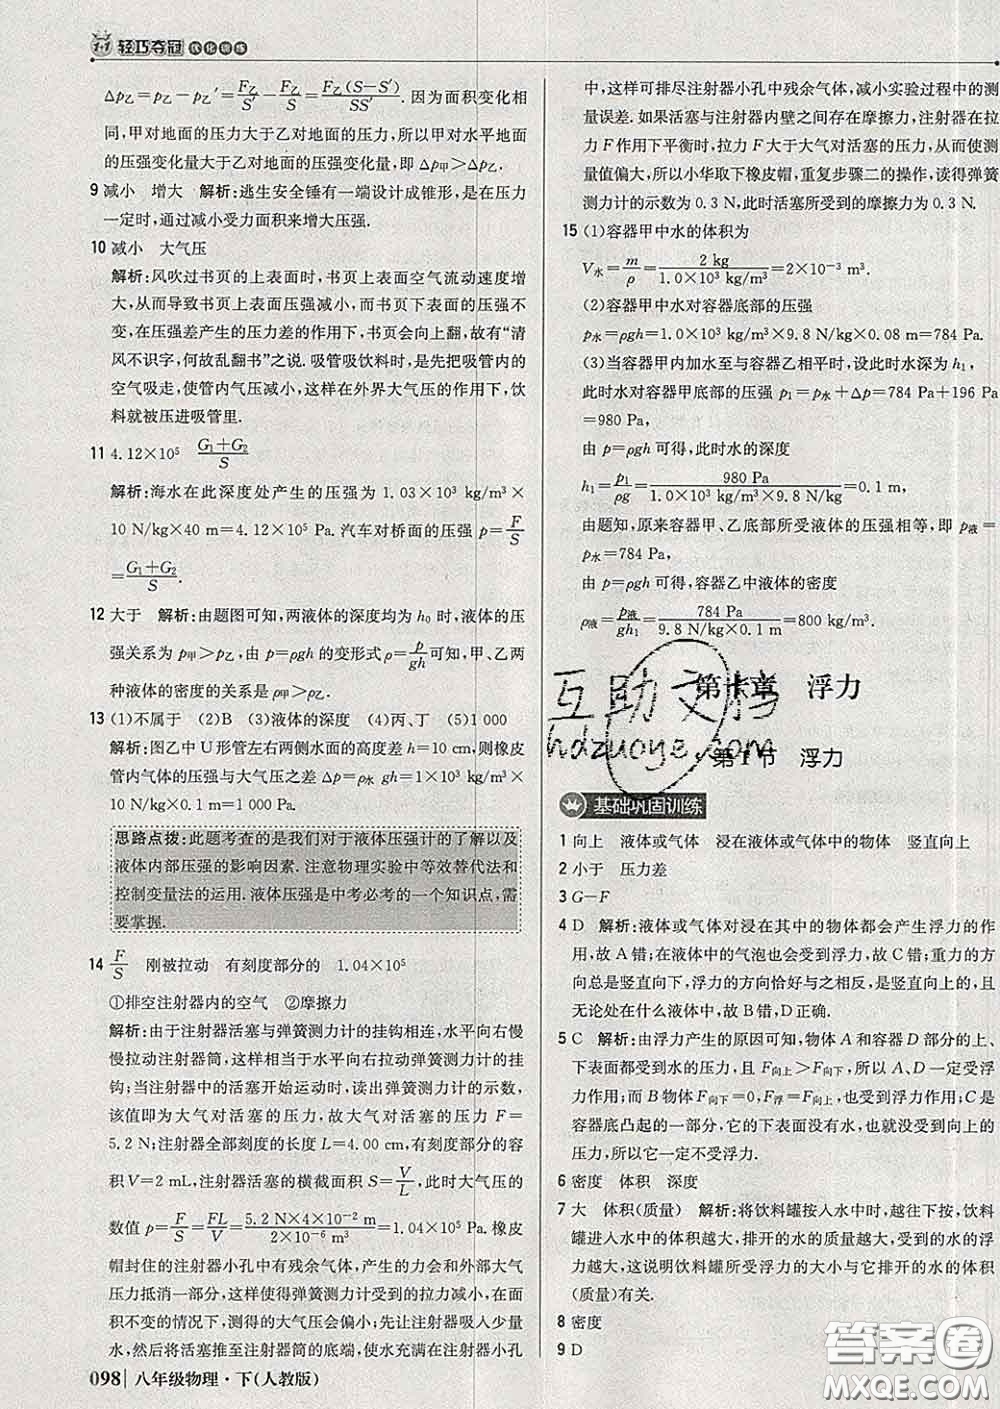 1+1 轻巧夺冠 优化训练
Δp乙=p乙-p乙'=F乙/S'-F乙/S=F乙(S-S')/SS'. 因为面积变化相
同,甲对地面的压力大于乙对地面的压力,所以甲对水平地面
的压强变化量大于乙对地面的压强变化量,即 Δp甲>Δp乙.
9 减小 增大 解析:逃生安全锤有一端设计成锥形,是在压力
一定时,通过减小受力面积来增大压强.
10 减小 大气压
解析:风吹过书页的上表面时,书页上表面空气流动速度增
大,从而导致书页上表面压强减小,而书页下表面的压强不
变,在压强差产生的压力差的作用下,书页会向上翻,故有“清
风不识字,何故乱翻书”之说. 吸管吸饮料时,是先把吸管内的
空气吸走,使管内气压减小,这样在外界大气压的作用下,饮
料就被压进吸管里.
11 4.12×10⁵ (G₁+G₂)/S
解析:海水在此深度处产生的压强为 1.03×10³ kg/m³×
10 N/kg×40 m=4.12×10⁵ Pa. 汽车对桥面的压强 p=F/S
=(G₁+G₂)/S.
12 大于 解析:由题图可知,两液体的深度均为 h₀ 时,液体的压
强关系为 p甲>p乙,由 p=ρgh 的变形式 ρ=p/gh 可知,甲、乙两
种液体的密度的关系是 ρ甲>ρ乙.
13 (1)不属于 (2)B (3)液体的深度 (4)丙、丁 (5)1 000
解析:图乙中 U 形管左右两侧水面的高度差 h=10 cm,则橡皮
管内气体的压强与大气压之差 Δp=ρ水 gh=1×10³ kg/m³×
10 N/kg×0.1 m=1 000 Pa.
思路点拨:此题考查的是我们对于液体压强计的了解以及
液体内部压强的影响因素. 注意物理实验中等效替代法和
控制变量法的运用. 液体压强是中考必考的一个知识点,需
要掌握.
14 F/S 刚被拉动 有刻度部分的 1.04×10⁵
①排空注射器内的空气 ②摩擦力
解析:由于注射器活塞与弹簧测力计的挂钩相连,水平向右慢
慢拉动注射器筒,这样相当于水平向右拉动弹簧测力计的挂
钩;当注射器中的活塞开始运动时,读出弹簧测力计的示数,
该值即为大气对活塞的压力,故大气对活塞的压力 F=
5.2 N;注射器全部刻度的长度 L=4.00 cm,有刻度部分的容
积 V=2 mL,注射器活塞的横截面积 S=V/L,此时大气压的
数值 p=F/S=FL/V=5.2 N×4×10⁻² m/2×10⁻⁶ m³=1.04×10⁵ Pa. 橡皮
帽封住的注射器小孔中有残余气体,产生的力会和外部大气
压力抵消一部分,弹簧测力计受到的拉力减小,在受力面积
不变的情况下,测得的大气压值偏小;先让注射器吸入少量
水,然后将活塞推至注射器筒的底端,使水充满在注射器小孔
中,这样可排尽注射器小孔中残余气体,减小实验过程中的测
量误差. 如果活塞与注射器内壁之间存在摩擦力,注射器在拉
力 F 作用下平衡时,拉力 F 大于大气对活塞的压力,从而使测
量值偏大,所以小华取下橡皮帽,重复步骤二的操作,读得弹簧
测力计的示数为 0.3 N,此时活塞所受到的摩擦力为 0.3 N.
15 (1)容器甲中水的体积为
V水=m/ρ=2 kg/1.0×10³ kg/m³=2×10⁻³ m³.
(2)容器甲中水对容器底部的压强
p水=ρgh=1.0×10³ kg/m³×9.8 N/kg×0.08 m=784 Pa.
(3)当容器甲内加水至与容器乙相平时,设此时水深为 h₁,
此时水对容器甲底部的压强 p₁=p水+Δp=784 Pa+196 Pa
=980 Pa.
由 p=ρgh 可得,此时水的深度
h₁=p₁/ρg=980 Pa/1.0×10³ kg/m³×9.8 N/kg=0.1 m,
由题知,原来容器甲、乙底部所受液体的压强相等,即 p液=
p水=784 Pa,
由 p=ρgh 可得,容器乙中液体的密度
ρ液=p液/gh₁=784 Pa/9.8 N/kg×0.1 m=800 kg/m³.
第十章 浮力
第1节 浮力
基础巩固训练
1 向上 液体或气体 浸在液体或气体中的物体 竖直向上
2 小于 压力差
3 G-F
4 D 解析:液体或气体对浸在其中的物体都会产生浮力的作
用,故 A 错;在液体中的气泡也会受到浮力,故 C 错;重力的方
向总是竖直向下,浮力的方向恰好与之相反,是竖直向上,且
无论处在什么液体中,故 B 错,D正确.
5 C 解析:由浮力产生的原因可知,物体 A 和容器 D 部分的上、
下表面都受到水的压力,且 F向上>F向下,所以 A、D 一定受浮
力作用;而 B 物体 F向下=0,F浮=F向上,也受浮力作用;C 是
容器底凸起的一部分,它的下表面没有水,也就没受到向上的
压力,所以它一定不受浮力.
6 密度 体积 深度
7 大 体积(质量) 解析:将饮料罐按入水中时,越往下按,饮料
罐进入水中的体积越大,排开的水的质量越大,受到的水的浮
力越大,说明饮料罐所受浮力的大小与它排开的水的体积
(质量)有关.
8 密度
9 D
互助文档
hdzuoye.com
答案圈
MXQE.COM
098 八年级物理·下(人教版)